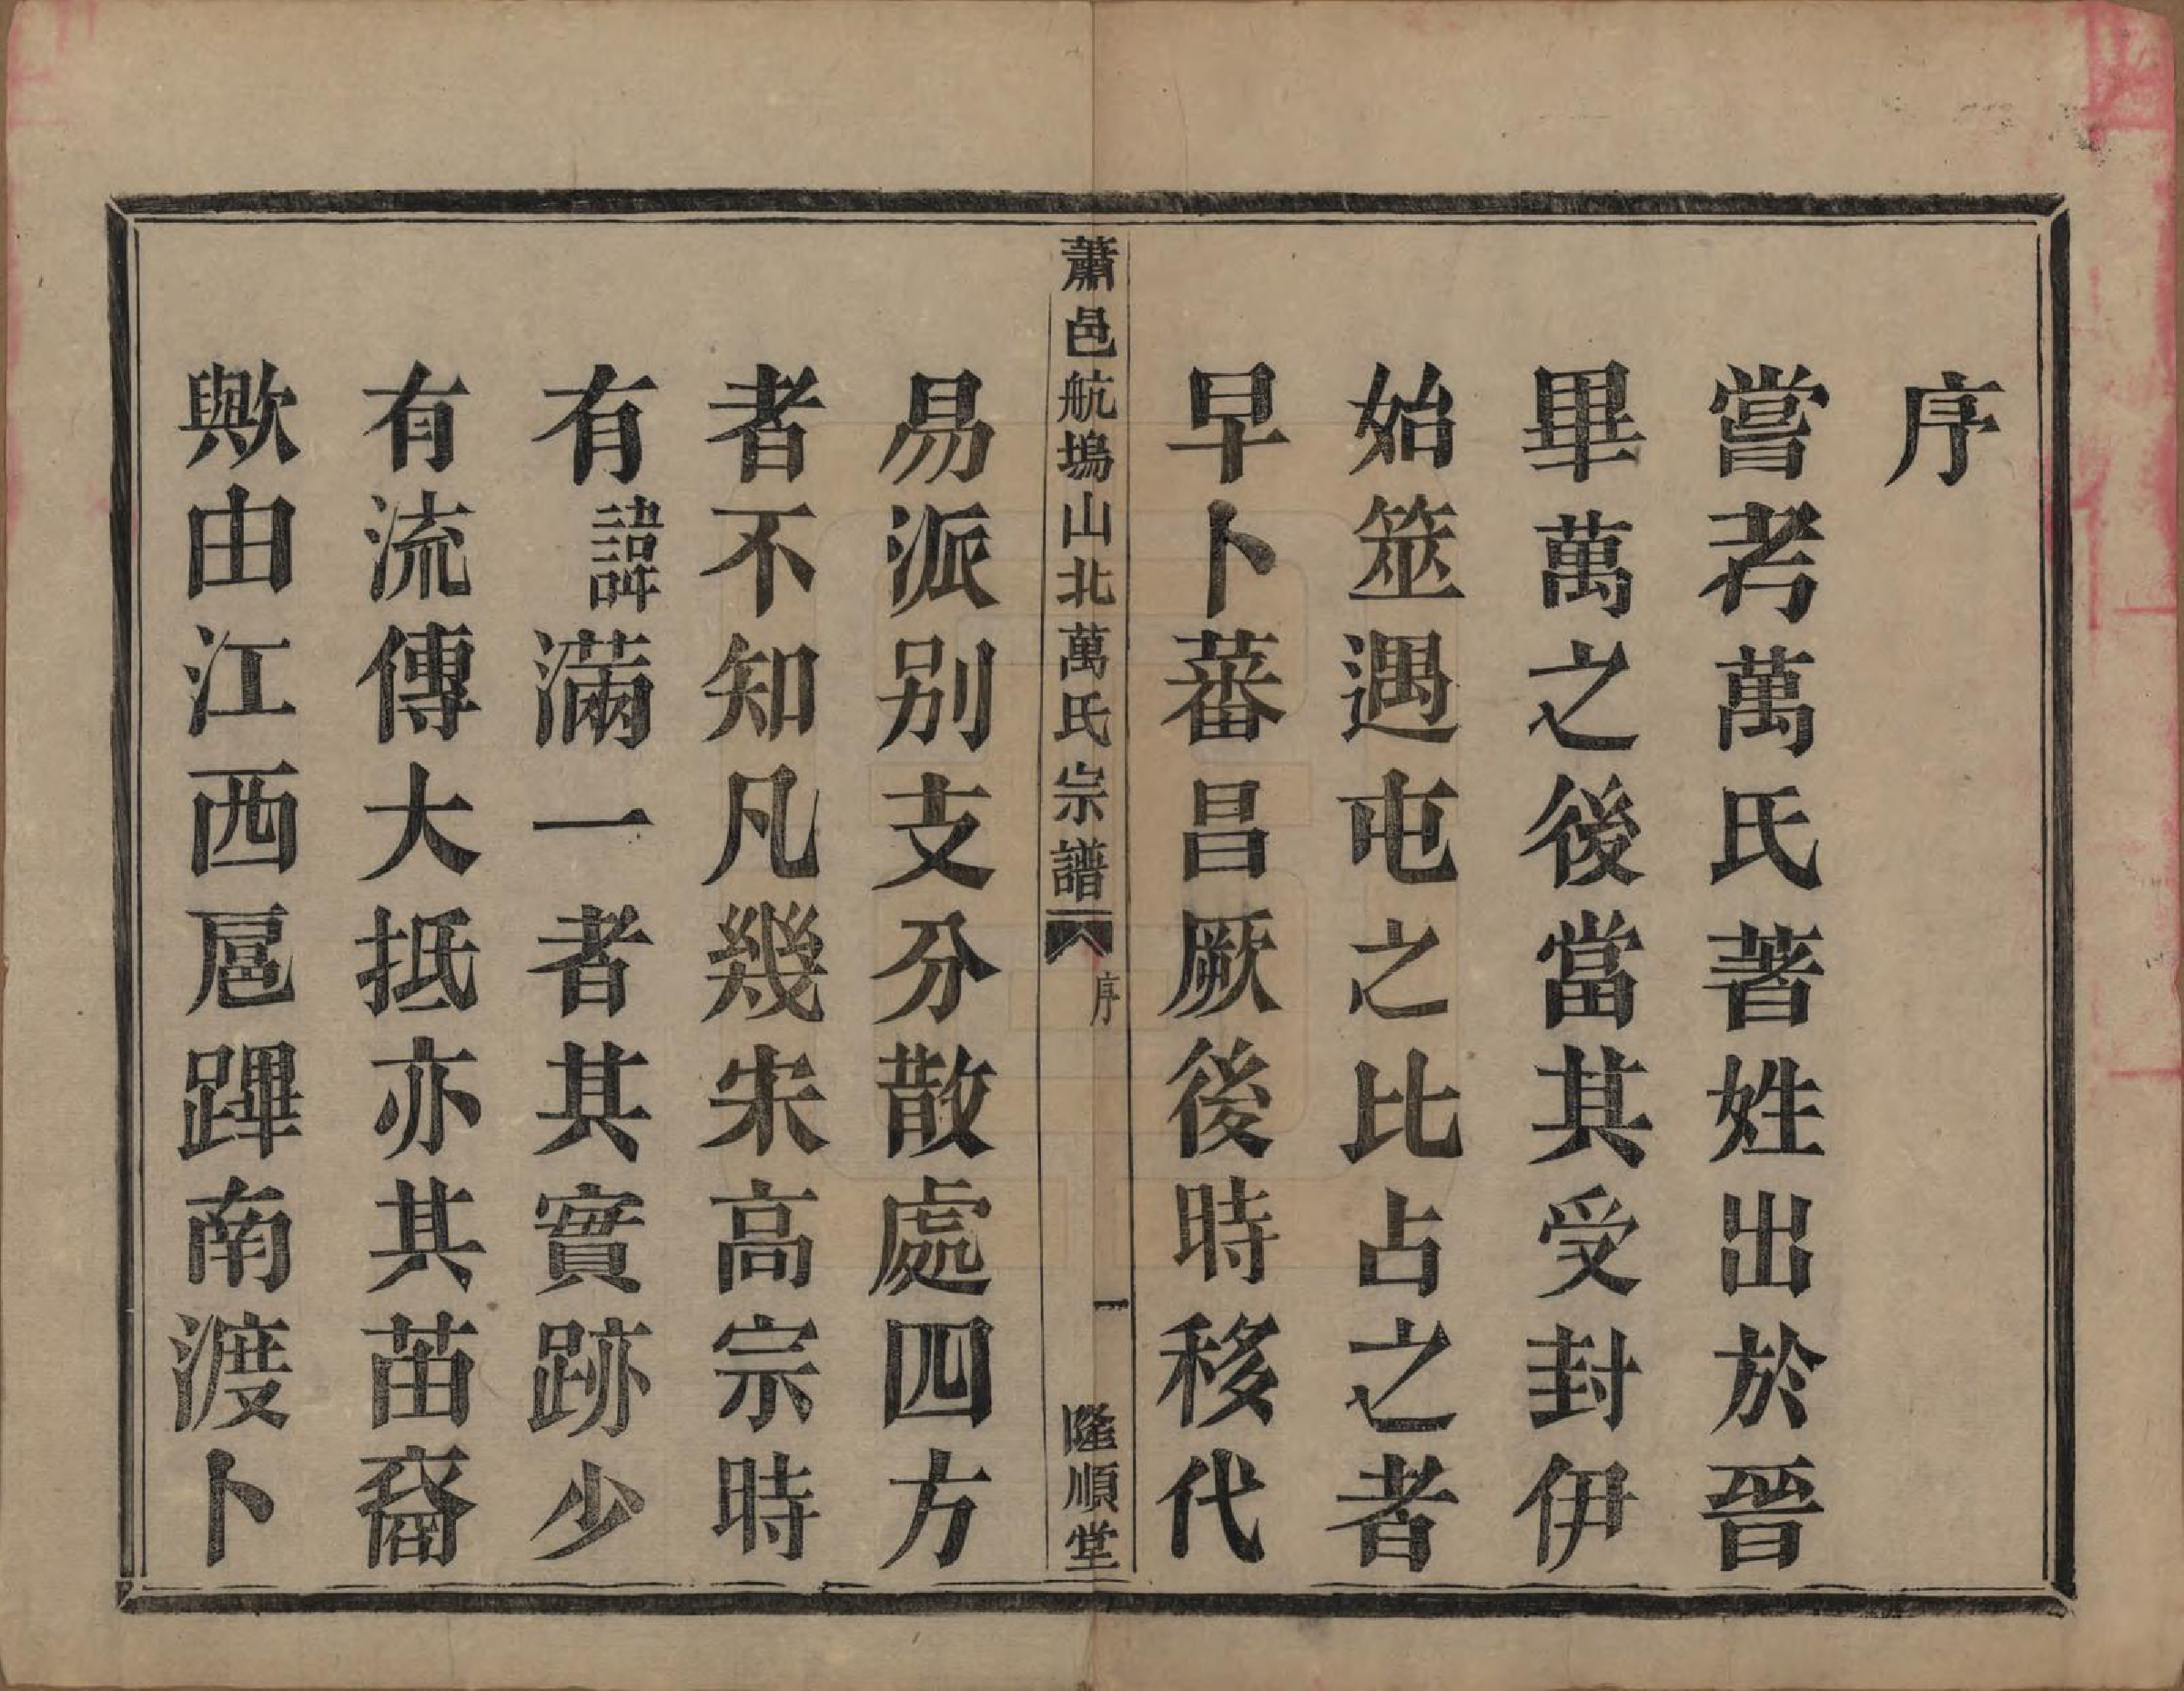 序
嘗考萬氏著姓出於晉
畢萬之後當其受封伊
始筮遇屯之比占之者
早卜蕃昌厥後時移代
蕭邑航塢山北萬氏宗譜
序
一
隆順堂
易派别支分散處四方
者不知凡幾宋高宗時
有諱滿一者其實跡少
有流傳大抵亦其苗裔
歟由江西扈蹕南渡卜